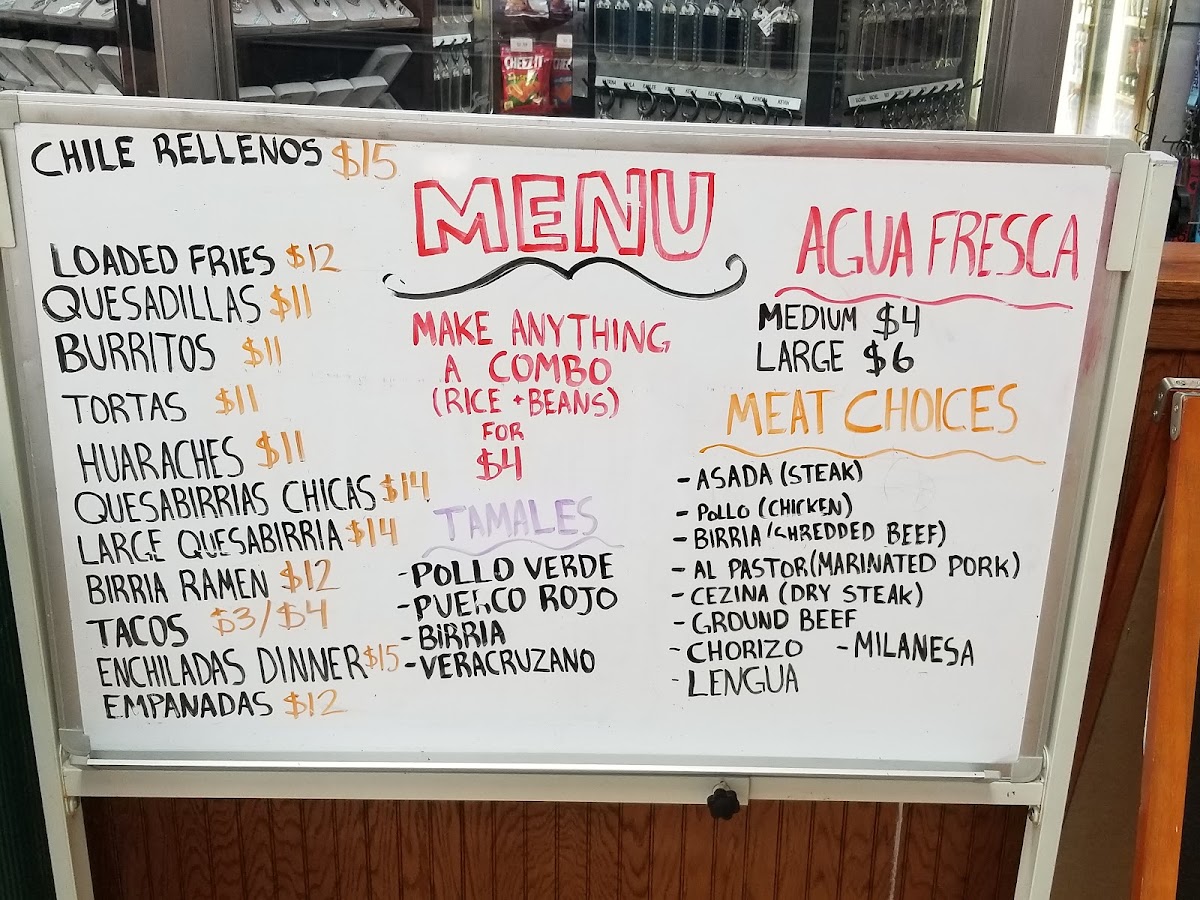 CHEEZ IT
CHILE RELLENOS $15
LOADED FRIES $12
QUESADILLAS $11
BURRITOS $11
TORTAS $11
HUARACHES $11
QUESABIRRIAS CHICAS $14
LARGE QUESABIRRIA $14
BIRRIA RAMEN $12
TACOS $3/$4
ENCHILADAS DINNER $15
EMPANADAS $12
MENU
MAKE ANYTHING
A COMBO
(RICE + BEANS)
FOR
$4
TAMALES
-POLLO VERDE
-PUERCO ROJO
-BIRRIA
-VERACRUZANO
AGUA FRESCA
MEDIUM $4
LARGE $6
MEAT CHOICES
- ASADA (STEAK)
- POLLO (CHICKEN)
- BIRRIA (SHREDDED BEEF)
- AL PASTOR (MARINATED PORK)
- CEZINA (DRY STEAK)
- GROUND BEEF
- CHORIZO - MILANESA
- LENGUA